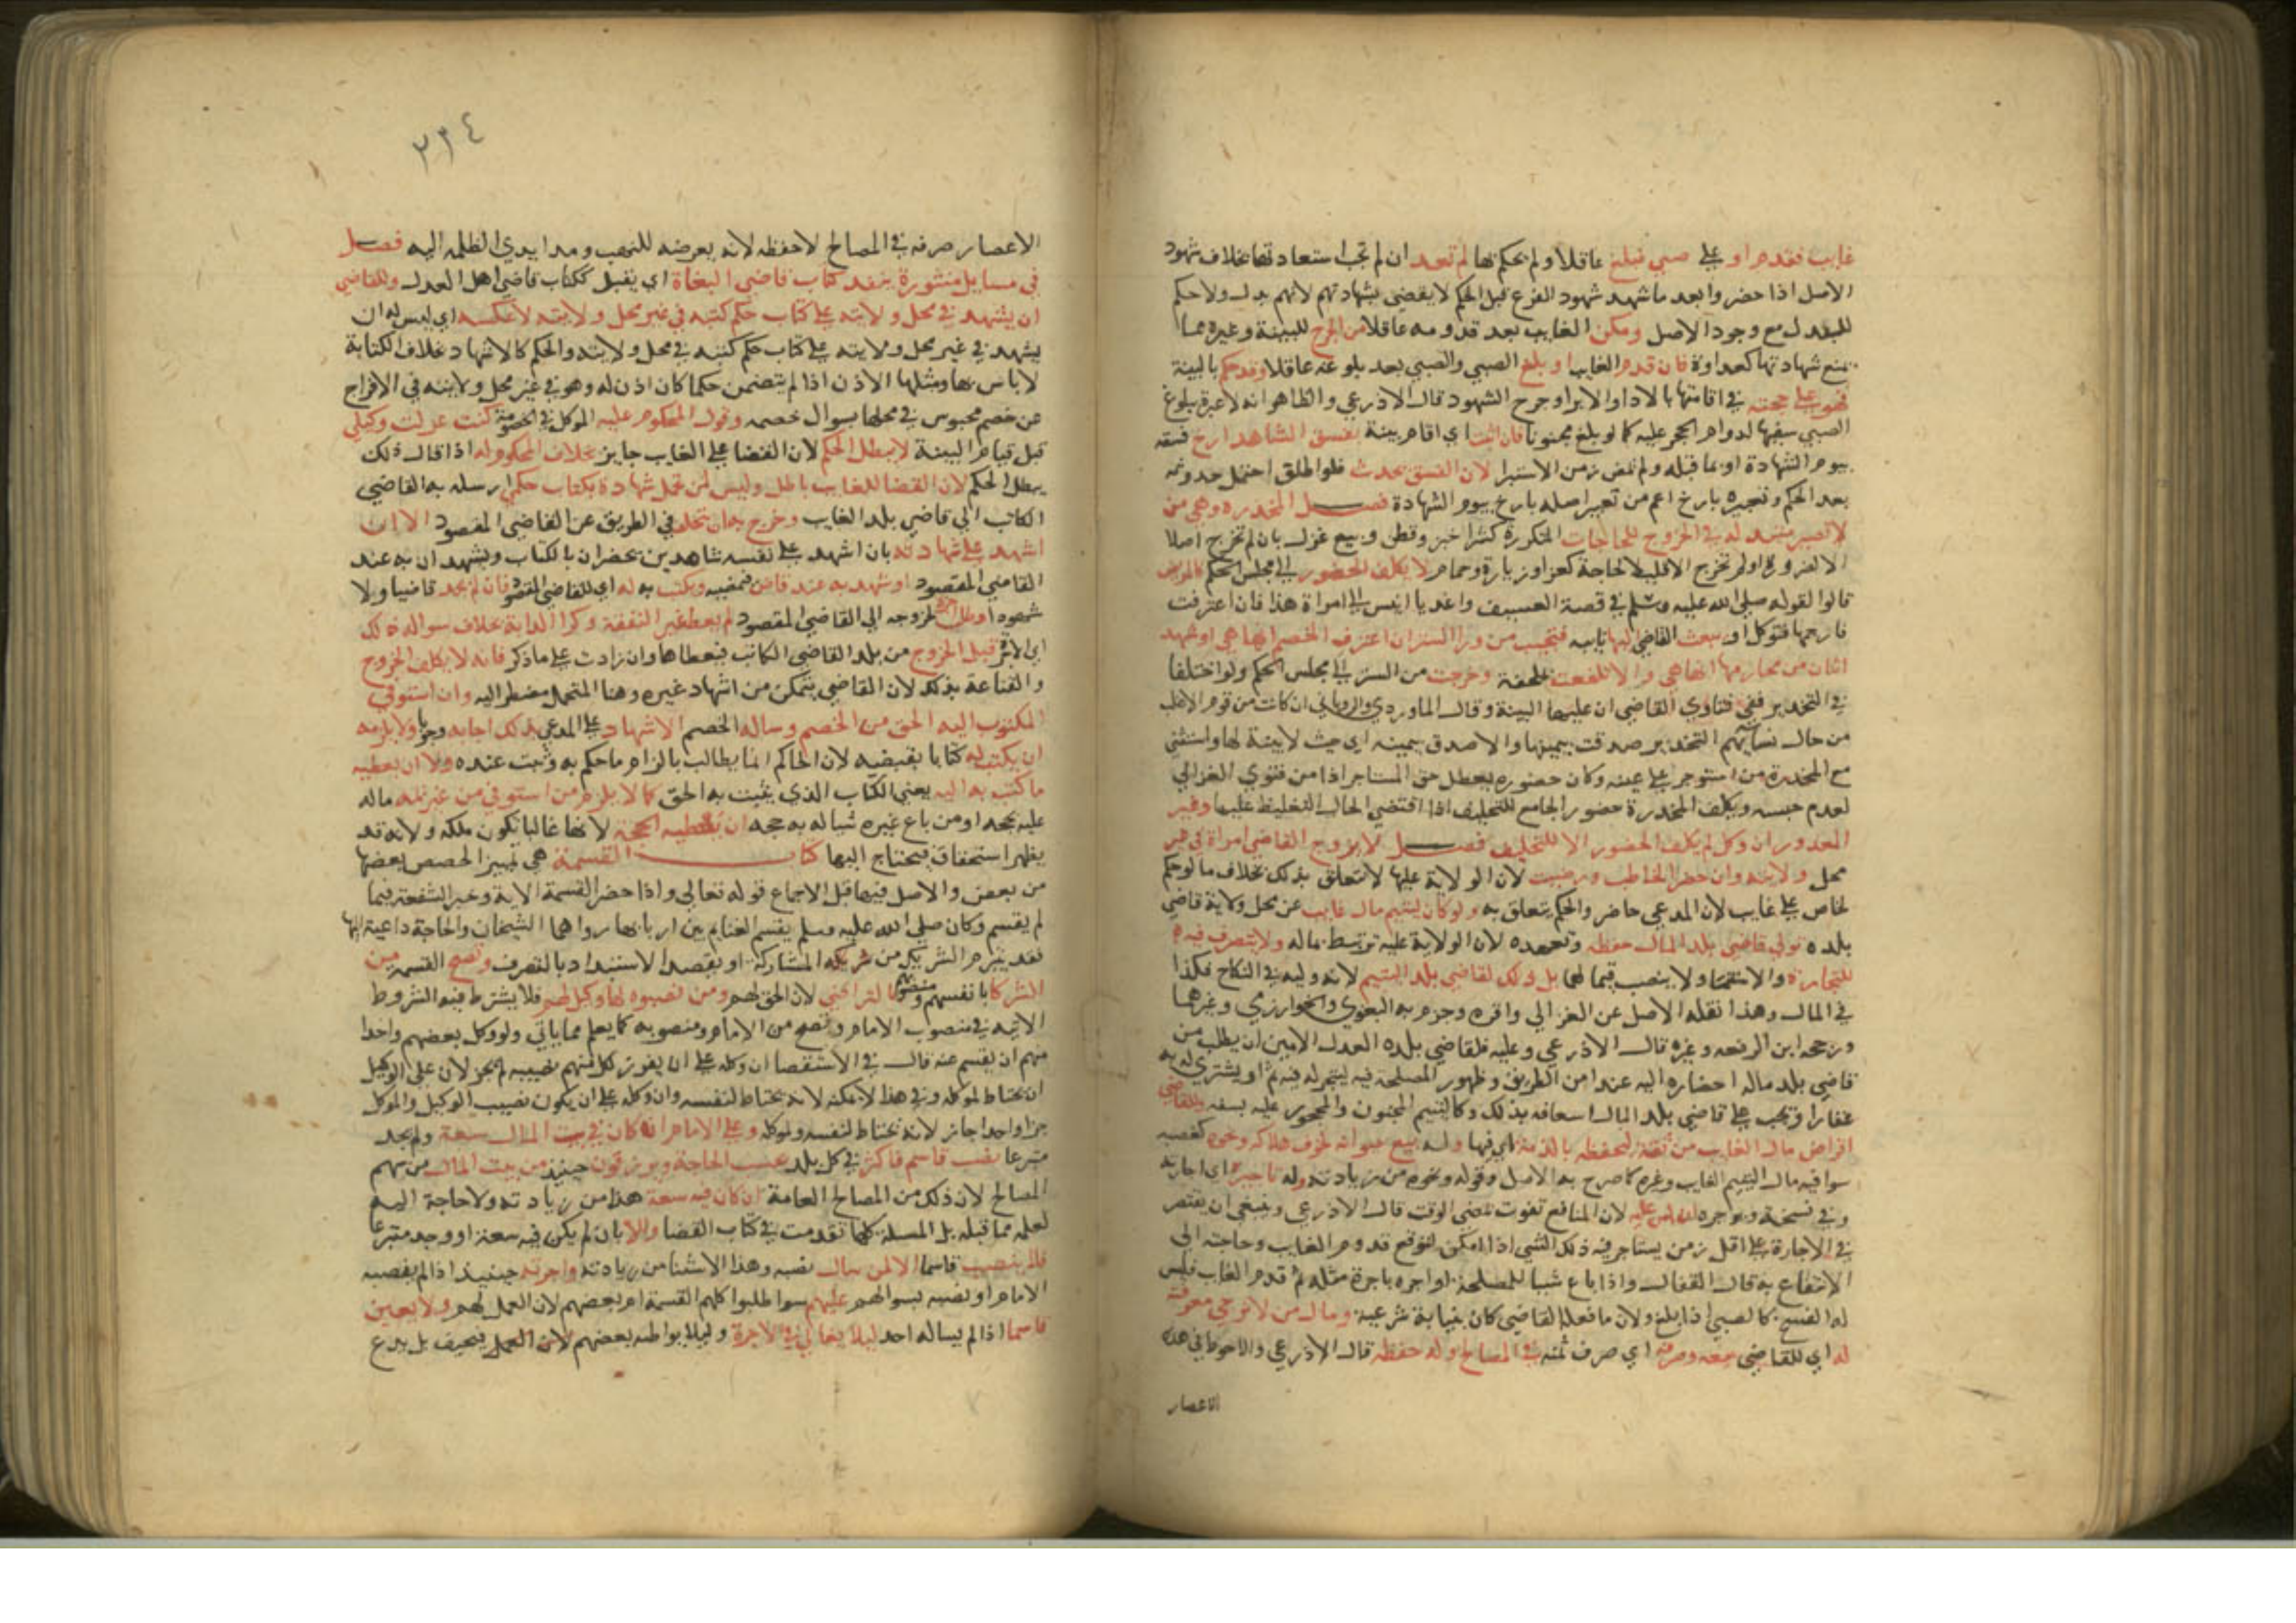 غايب فقدم او على صبي فبلغ عاقلا ولم يحكم بها لم تعد اي لم تجب استعادتها بخلاف شهود
الاصل اذا حضروا بعد ما شهد شهود الفرع قبل الحكم لا يقضي بشهادتهم لانهم بدل ولا حكم
للبدل مع وجود الاصل ومكن الغايب بعد قدومه عاقلا من الجرح للبينة وغيره مما
يمنع شهادتها كعداوة فان قدم الغايب او بلغ الصبي والصبي بعد بلوغه عاقلا وقد حكم بالبينة
فهو على حجته في اقامتها بالادا والابرا وجرح الشهود قال الاذرعي والظاهر انه لا عبرة ببلوغ
الصبي سفيها لدوام الحجر عليه كما لو بلغ مجنونا فان اثبت اي اقام بينة بفسق الشاهد ارخ فسقه
بيوم الشهادة او بما قبله ولم تمض زمن الاستبرا لان الفسق يحدث فلو اطلق احتمل حدوثه
بعد الحكم وتعبيره بارخ اعم من تعبير اصله بارخ بيوم الشهادة فصل المخدرة وهي من
لا تصير مبتذلة في الخروج للحاجات المتكررة كشرا خبز وقطن وبيع غزل بان لم تخرج اصلا
الا لضرورة او لم تخرج الا قليلا لحاجة كعزا وزيارة وحمام لا يكلف الحضور الى مجلس الحكم كالمريض
قالوا لقوله صلى الله عليه وسلم في قصة العسيف واغد يا انيس الى امراة هذا فان اعترفت
فارجمها فتوكل او يبعث القاضي اليها نايبه فتجيب من ورا الستر ان اعترف الخصم انها هي او شهد
اثنان من محارمها انها هي والا تلفعت بملحفة وخرجت من الستر الى مجلس الحكم ولو اختلفا
في التخدير ففي فتاوي القاضي ان عليها البينة وقال الماوردي والروياني ان كانت من قوم الاغلب
من حال نسائهم التخدير صدقت بيمينها والا صدق بيمينه اي حيث لا بينة لها واستثنى
مع المخدرة من استوجر على عينه وكان حضوره يعطل حق المستاجر اخذا من فتوي الغزالي
لعدم حبسه ويكلف المخدرة حضور الجامع للتحليف اذا اقتضي الحال التغليظ عليها وغير
المعذور ان وكل لم يكلف الحضور الا للتحليف فصل لا يزوج القاضي امراة في غير
محل ولايته وان حضر الخاطب ورضيت لان الولاية عليها لا تتعلق بذلك بخلاف ما لو حكم
لحاضر على غايب لان المدعي حاضر والحكم يتعلق به ولو كان ليتيم مال غايب عن محل ولاية قاضي
بلده تولى قاضي بلد المال حفظه وتعهده لان الولاية عليه ترتبط بماله ولا يتصرف فيه
للتجارة والاستنما ولا ينصب قيما لهما بل ذلك لقاضي بلد اليتيم لانه وليه في النكاح فكذا
في المال وهذا نقله الاصل عن الغزالي واقره وجزم به البغوي والخوارزمي وغيرهما
ورجحه ابن الرفعه وغيره قال الاذرعي وعليه فلقاضي بلده العدل الامين ان يطلب من
قاضي بلد ماله احضاره اليه عند امن الطريق وظهور المصلحة فيه ليتجر له فيه ثم او يشتري له به
عقارا ويجب على قاضي بلد المال اسعافه بذلك وكاليتيم المجنون والمحجور عليه بسفه وللقاضي
اقراض مال الغايب من ثقة ليحفظه بالذمة اي فيها وله بيع حيوانه لخوف هلاكه ونحوه كغصبه
سوا فيه مال اليتيم الغايب وغيره كما صرح به الاصل وقوله ونحوه من زيادته وله تاجيره اي اجارته
وفي نسخة ويوجره ان امن عليه لان المنافع تفوت بمضي الوقت قال الاذرعي وينبغي ان يقتصر
في الاجارة على اقل زمن يستاجر فيه ذلك الشي اذا امكن لتوقع قدوم الغايب وحاجته الى
الانتفاع به قال القفال واذا باع شيا للمصلحة او اجره باجرة مثله ثم قدم الغايب فليس
له الفسخ كالصبي اذا بلغ ولان ما فعله القاضي كان بنيابة شرعية ومال من لا ترجي معرفته
له اي للقاضي بيعه وصرفه اي صرف ثمنه في المصالح وله حفظه قال الاذرعي والاحوط في هذه
الاعصار
٢٢٤
الاعصار صرفه في المصالح لا حفظه لانه يعرضه للنهب ومد ايدي الظلمه اليه فصل
في مسايل منثورة ينفد كتاب قاضي البغاة اي يقبل ككتاب قاضي اهل العدل وللقاضي
ان يشهد في محل ولايته على كتاب حكم كتبه في غير محل ولايته لا عكسه اي ليس له ان
يشهد في غير محل ولايته على كتاب حكم كتبه في محل ولايته والحكم كالاشهاد بخلاف الكتابة
لا باس بها ومثلها الاذن اذا لم يتضمن حكما كان اذن له وهو في غير محل ولايته في الافراج
عن خصم محبوس في محلها بسوال خصمه وقول المحكوم عليه الموكل في الخصومة كنت عزلت وكيلي
قبل قيام البينة لا يبطل الحكم لان القضا على الغايب جايز بخلاف المحكوم له اذا قال ذلك
يبطل الحكم لان القضا للغايب باطل وليس لمن تحمل شهادة بكتاب حكمي ارسله به القاضي
الكاتب الى قاضي بلد الغايب وخرج به ان يتخلف في الطريق عن القاضي المقصود الا ان
اشهد على شهادته بان اشهد على نفسه شاهدين يحضران بالكتاب ويشهدان به عند
القاضي المقصود او شهد به عند قاض فيمضيه ويكتب به له اي للقاضي المقصود فان لم يجد قاضيا ولا
شهودا وطلب اجرة لخروجه الى القاضي المقصود لم يعط غير النفقة وكرا الدابة بخلاف سواله ذلك
اي الاجرة قبل الخروج من بلد القاضي الكاتب فيعطاها وان زادت على ما ذكر فانه لا يكلف الخروج
والقناعة بذلك لان القاضي يتمكن من اشهاد غيره وهنا المتحمل مضطر اليه وان استوفي
المكتوب اليه الحق من الخصم وساله الخصم الاشهاد على المدعي بذلك اجابه وجوبا ولا يلزمه
ان يكتب له كتابا بقبضه لان الحاكم انما يطالب بالزام ما حكم به وثبت عنده ولا ان يعطيه
ما كتب به اليه يعني الكتاب الذي يثبت به الحق كما لا يلزم من استوفى من غريمه ماله
عليه بحجه او من باع غيره شيا له به حجه ان يعطيه الحجة لانها غالبا تكون ملكه ولانه قد
يظهر استحقاق فيحتاج اليها كتاب القسمة هي تمييز الحصص بعضها
من بعض والاصل فيها قبل الاجماع قوله تعالى واذا حضر القسمة الاية وخبر الشفعة فيما
لم يقسم وكان صلى الله عليه وسلم يقسم الغنايم بين اربابها رواهما الشيخان والحاجة داعية اليها
فقد يتبرم الشريك من شريكه المشاركة او يقصد الاستبداد بالتصرف وتصح القسمة من
الشركا بانفسهم ومنصوبهم بالتراضي لان الحق لهم ومن نصبوه لها وكيل لهم فلا يشترط فيه الشروط
الاتية في منصوب الامام وتصح من الامام ومنصوبه كما يعلم مما ياتي ولو وكل بعضهم واحدا
منهم ان يقسم عنه قال في الاستقصا ان وكله على ان يفرز لكل منهم نصيبه لم يجز لان على الوكيل
ان يحتاط لموكله وفي هذا لا يمكنه لانه يحتاط لنفسه وان وكله على ان يكون نصيب الوكيل والموكل
جزا واحدا جاز لانه يحتاط لنفسه ولموكله وعلى الامام ان كان في بيت المال سعة ولم يجد
متبرعا نصب قاسم فاكثر في كل بلد بحسب الحاجة ويرزقون حينيذ من بيت المال من سهم
المصالح لان ذلك من المصالح العامة ان كان فيه سعة هذا من زيادته ولا حاجة اليه
لعلمه مما قبله بل المسيلة كلها تقدمت في كتاب القضا والا بان لم يكن فيه سعة او وجد متبرعا
فلم ينصب قاسما الا لمن سال نصبه وهذا الاستثنا من زيادته واجرته حينيذ اذا لم ينصبه
الامام او نصبه بسوالهم عليهم سوا طلبوا كلهم القسمة ام بعضهم لان العمل لهم ولا يعين
قاسما اذا لم يساله احد ليلا يغالي في الاجرة وليلا يواطئه بعضهم لان العمل يتحيف بل يدع